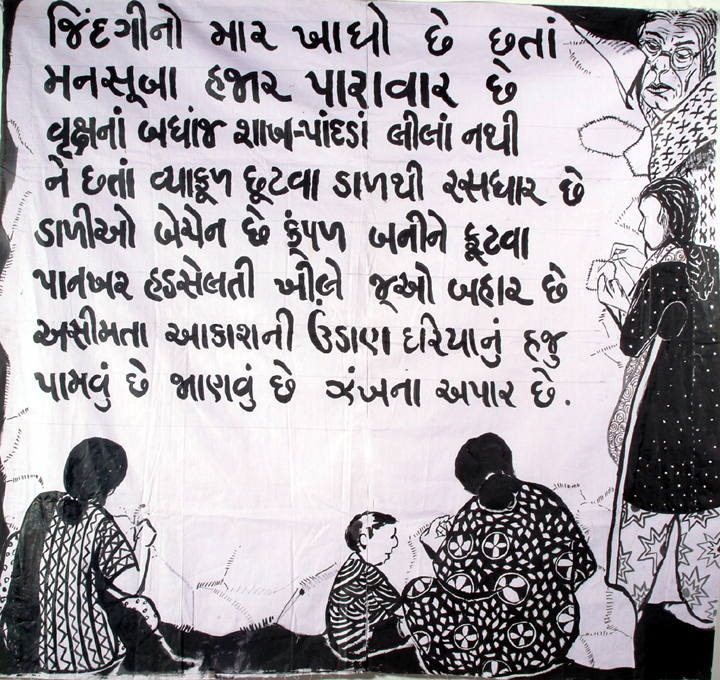 જિંદગીનો માર ખાધો છે છતાં
મનસૂબા હજાર પારાવાર છે
વૃક્ષનાં બધાંજ શાખ-પાંદડાં લીલાં નથી
ને છતાં વ્યાકૂળ છૂટવા ડાળથી રસધાર છે
ડાળીઓ બેચેન છે કૂંપળ બનીને ફૂટવા
પાનખર હડસેલતી ખીલે જૂઓ બહાર છે
અસીમતા આકાશની ઉંડાણ દરિયાનું હજુ
પામવું છે જાણવું છે ઝંખના અપાર છે.